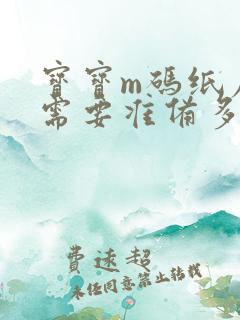 寶寶m碼紙
需要准備多
費速超
未经同意禁止转载